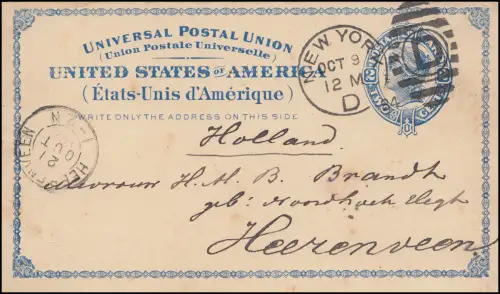 UNIVERSAL POSTAL UNION
(Union Postale Universelle)
UNITED STATES OF AMERICA
(États-Unis d'Amérique)
WRITE ONLY THE ADDRESS ON THIS SIDE
NEW YORK
OCT 9
12 M
D
HEERENVEEN
21
OCT
Holland
Mevrouw H. M. B. Brandt
geb:
Heerenveen